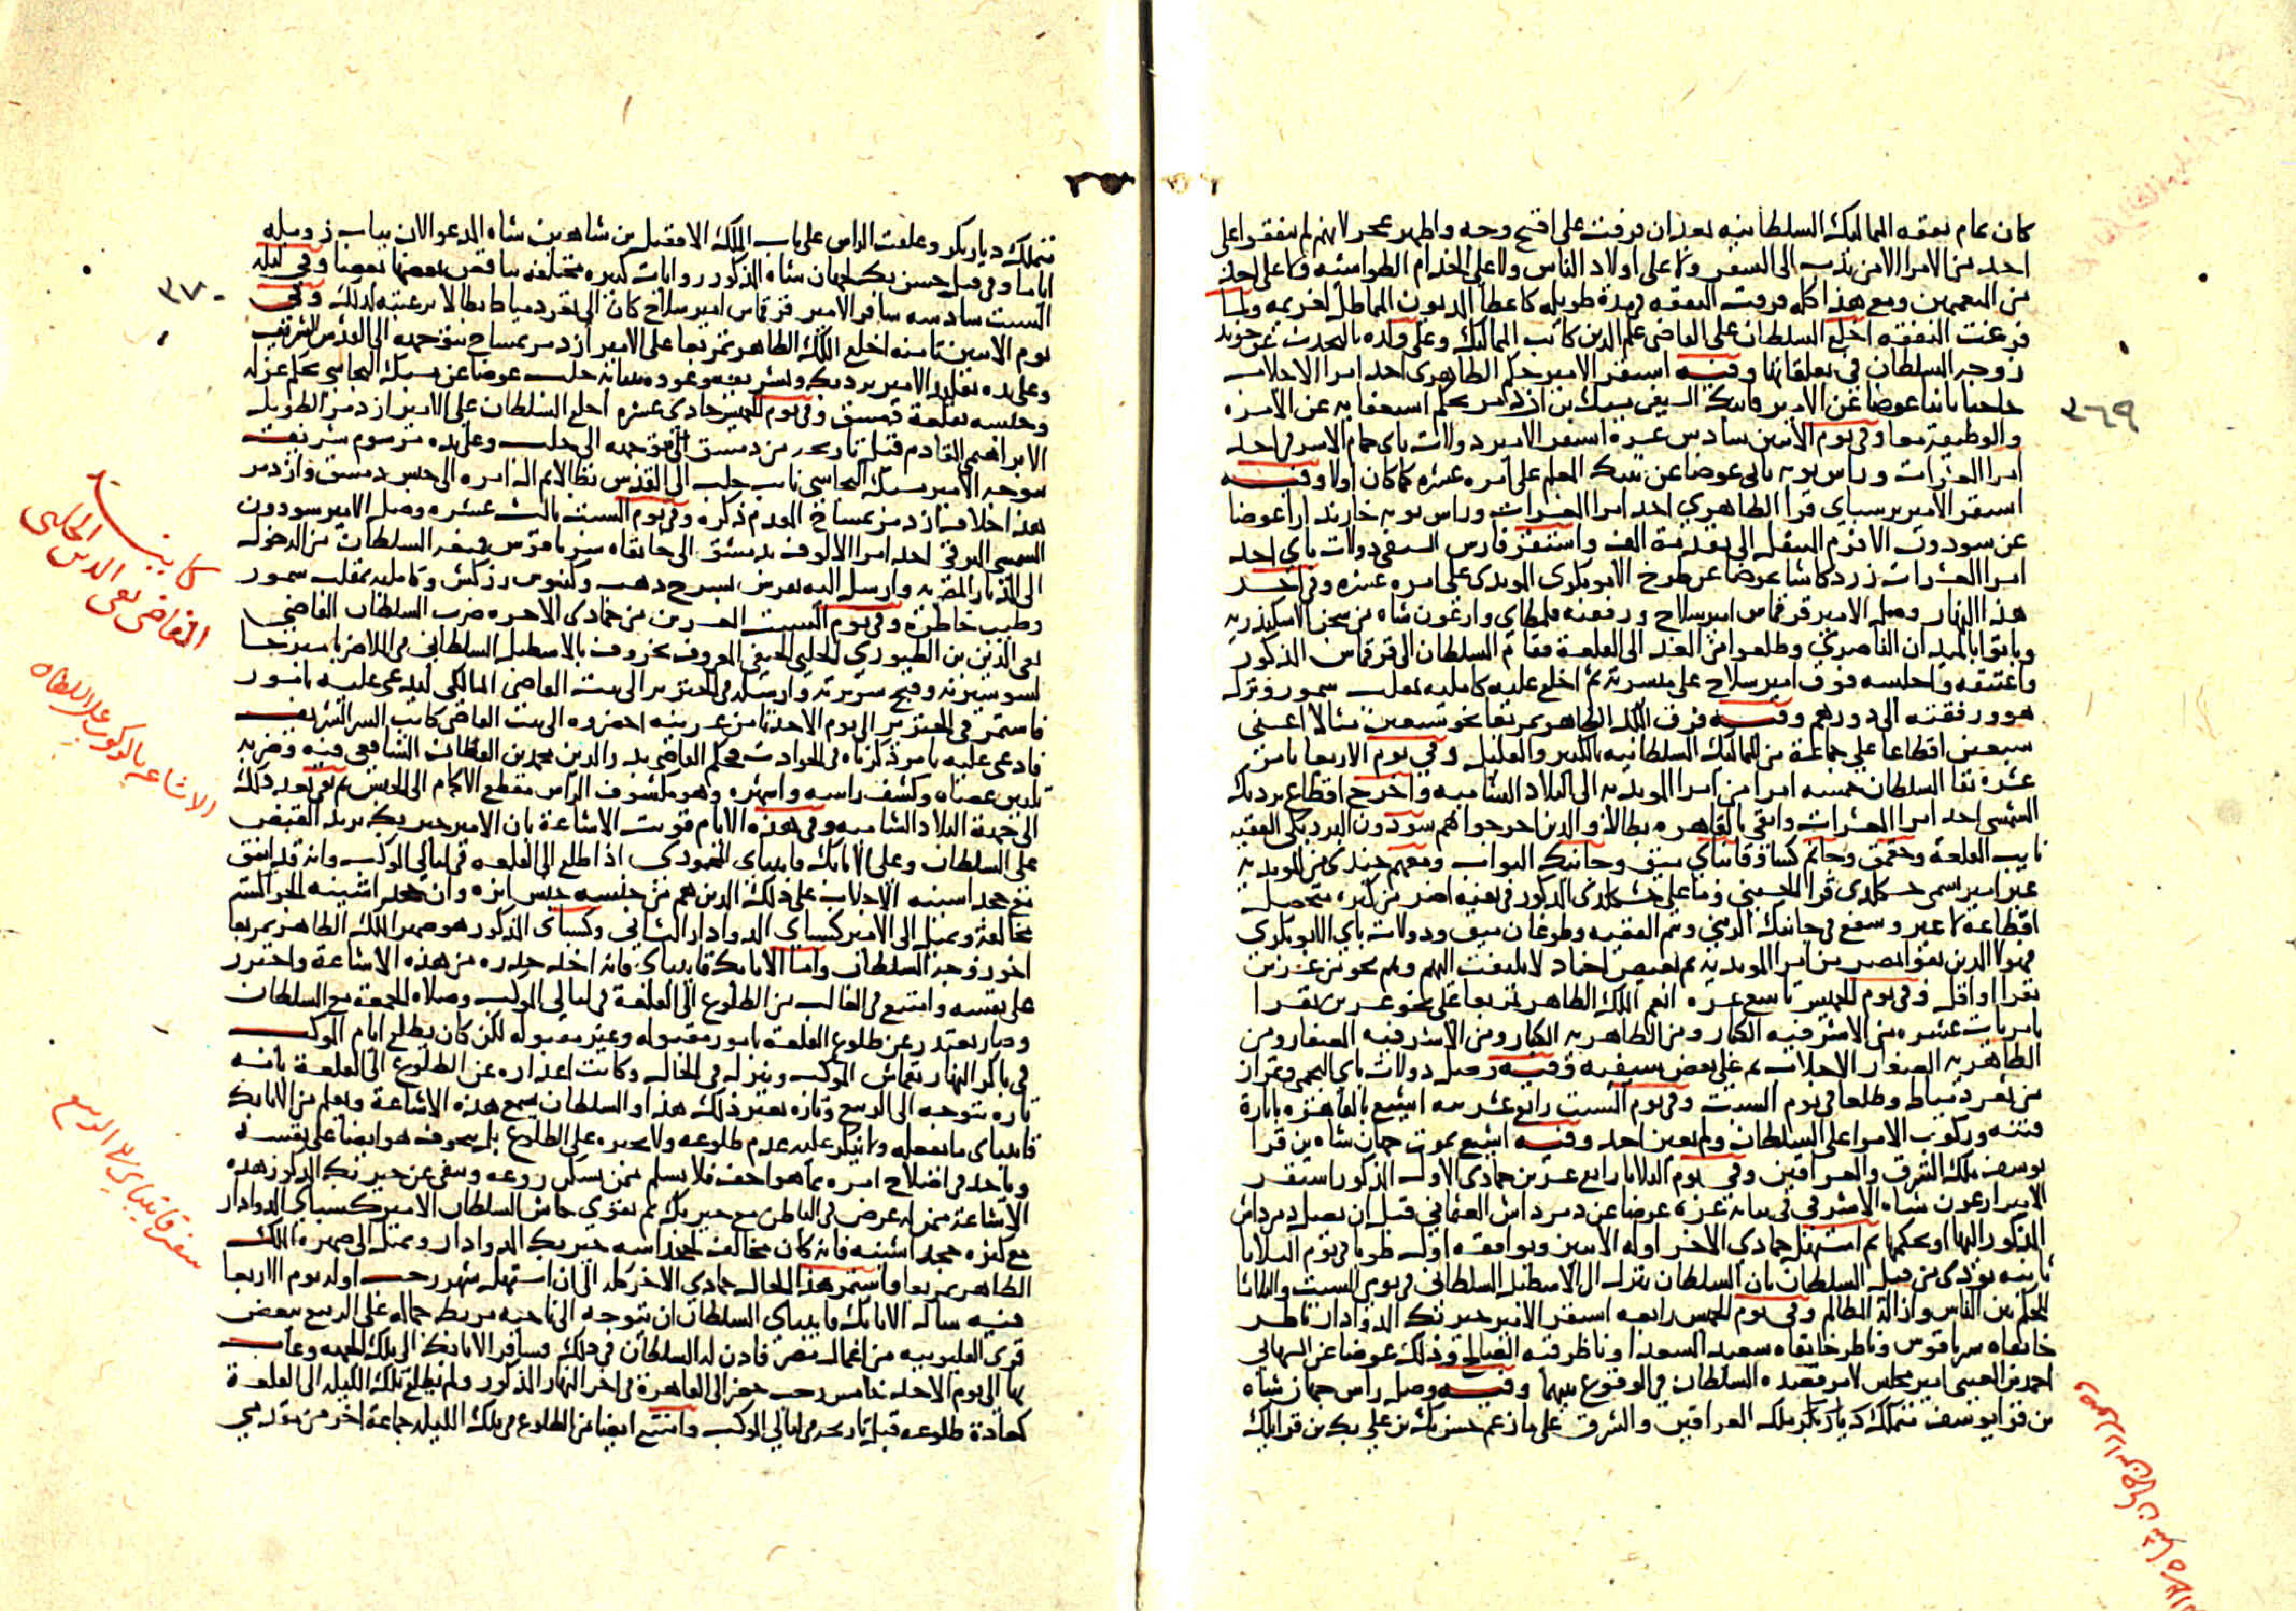 كان تمام نفقه المماليك السلطانيه بعد ان فرقت على اقبح وجه واظهر عجز لانهم لم ينفقوا على
احد من الامرا الا من ندب الى السفر ولا على اولاد الناس ولا على الخدام الطواشيه ولا على احد
من المعممين ومع هذا كله فرقت النفقه في مدة طويله كاعطا المديون المماطل لغريمه ولما
فرغت النفقه اخلع السلطان على القاضى علم الدين كاتب المماليك وعلى ولده بالتحدث عن خوند
زوجه السلطان في تعلقاتها وفيه استقر الامير جكم الطاهرى احد امرا الاجلاب
حاجبا ثانيا عوضا عن الامير قانبك السيفى يشبك بن ازدمر بحكم استعفايه عن الامره
والوظيفة معا وفي يوم الاثنين سادس عشره استقر الامير دولات باى حمام الاشرفى احد
امرا العشرات وراس نوبه ثانى عوضا عن تنبك المعلم على امره عشره كما كان اولا وفيه
استقر الامير برسباى قرا الظاهري احد امرا العشرات وراس نوبه خازندارا عوضا
عن سودون الافرم المنتقل الى تقدمة الف واستقر فارس السيفى دولات باى احد
امرا العشرات زردكاشا عوضا عن طوخ الابوبكرى المويدى على امره عشره وفي اخر
هذا النهار وصل الامير قرقماس امير سلاح ورفقته قلمطاى وارغون شاه من سجن الاسكندريه
وباتوا بالميدان الناصري وطلعوا من الغد الى القلعة فقام السلطان الى قرقماس المذكور
واعتنقه واجلسه فوق امير سلاح على ميسرته ثم اخلع عليه كامليه بمقلب سمور ونزل
هو ورفقته الى دورهم وفيه فرق الملك الظاهر تمربغا نحو سبعين مثالا اعنى
سبعين اقطاعا على جماعة من المماليك السلطانيه بالكثير والقليل وفي يوم الاربعا ثامن
عشره نفا السلطان خمسه امرا من امرا المويديه الى البلاد الشاميه واخرج اقطاع بردبك
الشمسى احد امرا العشرات وابقى بالقاهره بطالا والدين اخرجوا هم سودون البردبكى الفقيه
نايب القلعة وجقمق وجانم كسا وقانباي ميق وجانبك البواب ومعهم جندى من المويديه
غير امير اسمى خشكلدى قرا الحسنى وما على خشكلدى المذكور في نفيه اضر من كبره متحصل
اقطاعه لا غير وشفع في جانبك الزينى وتنم الفقيه وطوغان ميق ودولات باي الابوبكرى
فهولا الدين بقوا بمصر من امرا المويديه
نفرا او اقل وفي يوم الخميس تاسع عشره انعم الملك الظاهر تمربغا على نحو عشرين نفرا
بامريات عشره من الاشرفيه الكبار ومن الظاهريه الكبار ومن الاشرفيه الصغار ومن
الظاهريه الصغار الاجلاب ثم على بعض سيفيه وفيه وصل دولات باي النجمى وتمراز
من ثغر دمياط وطلعا في يوم السبت وفي يوم السبت رابع عشرينه اشيع بالقاهره باثارة
فتنه وركوب الامرا على السلطان ولم يعين احد وفيه اشيع بموت جهان شاه بن قرا
يوسف ملك الشرق والعراقين وفي يوم الثلاثا رابع عشرين جمادى الاول المذكور استقر
الامير ارغون شاه الاشرفي في نيابه غزه عوضا عن دمرداش العثمانى قبل ان يصل دمرداش
المذكور اليها او يحكمها ثم استهل جمادى الاخر اوله الاثنين ويوافقه اول طوبا في يوم الثلاثا
ثانيه نودى من قبل السلطان بان السلطان ينزل الى الاسطبل السلطانى في يومى السبت والثلاثا
للحكم بين الناس وازالة المظالم وفي يوم الخميس رابعه استقر الامير خيربك الدوادار ناظر
خانقاه سرياقوس وناظر خانقاه سعيد السعدا وناظر قبه الصالح وذلك عوضا عن الشهابى
احمد بن العينى امير مجلس لامر قصده السلطان في الوقوع بينهما وفيه وصل راس جهان شاه
بن قرا يوسف متملك ديار بكر ملك العراقين والشرق على ما زعم حسن بك بن على بك بن قرايلك
٣٦٩
متملك ديار بكر وعلقت الراس على باب الملك الافضل بن شاهين شاه المدعو الان بباب زويله
اياما وفي قتل حسن بك لجهان شاه المذكور روايات كثيره مختلفه يناقض بعضها بعضا وفي ليله
السبت سادسه سافر الامير قرقماس امير سلاح كان الى ثغر دمياط بطالا برغبته لذلك وفي
يوم الاثنين ثامنه اخلع الملك الظاهر تمربغا على الامير ازدمر تمساح بتوجهه الى القدس الشريف
وعلى يده تقليد الامير بردبك وتشريفه وعوده لنيابه حلب عوضا عن يشبك البجاسى بحكم عزله
وحبسه بقلعة دمشق وفي يوم الخميس حادى عشره اخلع السلطان على الامير ازدمر الطويل
الابراهيمى القادم قبل تاريخه من دمشق بتوجهه الى حلب وعلى يده مرسوم شريف
بتوجه الامير يشبك البجاسى نايب حلب الى القدس بطالا ثم الى امره الى حبس دمشق وازدمر
هذا خلاف ازدمر تمساح المقدم ذكره وفي يوم السبت ثالث عشره وصل الامير سودون
الشمسى البرقي احد امرا الالوف بدمشق الى خانقاه سرياقوس فمنعه السلطان من الدخول
الى الديار المصريه وارسل اليه بفرس بسرج ذهب وكنبوش زركش وكامليه بمقلب سمور
وطيب خاطره وفي يوم السبت العشرين من جمادى الاخره ضرب السلطان القاضى
تقى الدين بن الطيوري الحلبى الحنفى المعروف بخروف بالاسطبل السلطانى في الملا ضربا مبرحا
لسو سيرته وقبح سريرته وارسله في الجنزير الى بيت القاضى المالكى ليدعى عليه بامور
فاستمر في الجنزير الى يوم الاحد ثامن عشرينه احضروه الى بيت القاضى كاتب السر الشريف
فادعى عليه بامر ذكرناه في الحوادث فحكم القاضى بدر الدين محمد بن القطان الشافعى فيه وضربه
ثمانين عصاه وكشف راسه واشهره وهو مكشوف الراس مقطع الاكمام الى الحبس ثم نفى بعد ذلك
الى جهة البلاد الشاميه وفي هذه الايام قويت الاشاعة بان الامير خيربك يريد القبض
على السلطان وعلى الاتابك قايتباى المحمودى اذا طلع الى القلعه في ليالى الموكب وانه قد اتفق
مع خجداشيته الاجلاب على ذلك الدين هم من جنسه جنس ابزه وان خجداشيته
مخالفه وتميل الى الامير كسباى الدوادار الثانى وكسباى المذكور هو صهر الملك الظاهر تمربغا
اخو زوجة السلطان واما الاتابك قايتباى فانه اخذ حذره من هذه الاشاعة واحترز
على نفسه وامتنع في الغالب من الطلوع الى القلعة في ليالى الموكب وصلاه الجمعة مع السلطان
وصار يعتذر عن طلوع القلعة بامور مقبوله وغير مقبوله لكن كان يطلع ايام الموكب
في باكر النهار بقماش الموكب وينزل في الحال وكانت اعذاره عن الطلوع الى القلعة بانه
تاره يتوجه الى الربيع وتاره بغير ذلك هذا والسلطان يسمع هذه الاشاعة ويعلم من الاتابك
قايتباى ما يفعله ولا ينكر عليه عدم طلوعه ولا يجبره على الطلوع بل يخوف هو ايضا على نفسه
وياخذ في اصلاح امره بما هو اخف فلا يسلم ممن يسكن روعه وينفى عن خيربك المذكور هذه
الاشاعة ممن له غرض في الباطن مع خيربك ثم يقوي جاش السلطان الامير كسباى الدوادار
مع كثره خجداشيته فانه كان مخالف لخجداشه خيربك الدوادار ويميل الى صهره الملك
الظاهر تمربغا واستمر هذا الحال جمادى الاخر كله الى ان استهل شهر رجب اوله يوم الاربعا
فيه سال الاتابك قايتباى السلطان ان يتوجه الى ناحيه مربط جماله على الربيع ببعض
قرى القليوبيه من اعمال مصر فاذن له السلطان في ذلك وسافر الاتابك الى تلك الجهه وغاب
بها الى يوم الاحد خامس رجب حضر الى القاهرة في اخر النهار المذكور ولم يطلع تلك الليله الى القلعة
كعادة طلوعه قبل تاريخه في ليالى الموكب وامتنع ايضا من الطلوع في تلك الليله جماعة اخر من مقدمى
٣٧٠
كاينة
القاضى تقى الدين الحلبى
الاشاعه بالركوب على السلطان
سفر قايتباى الى الربيع